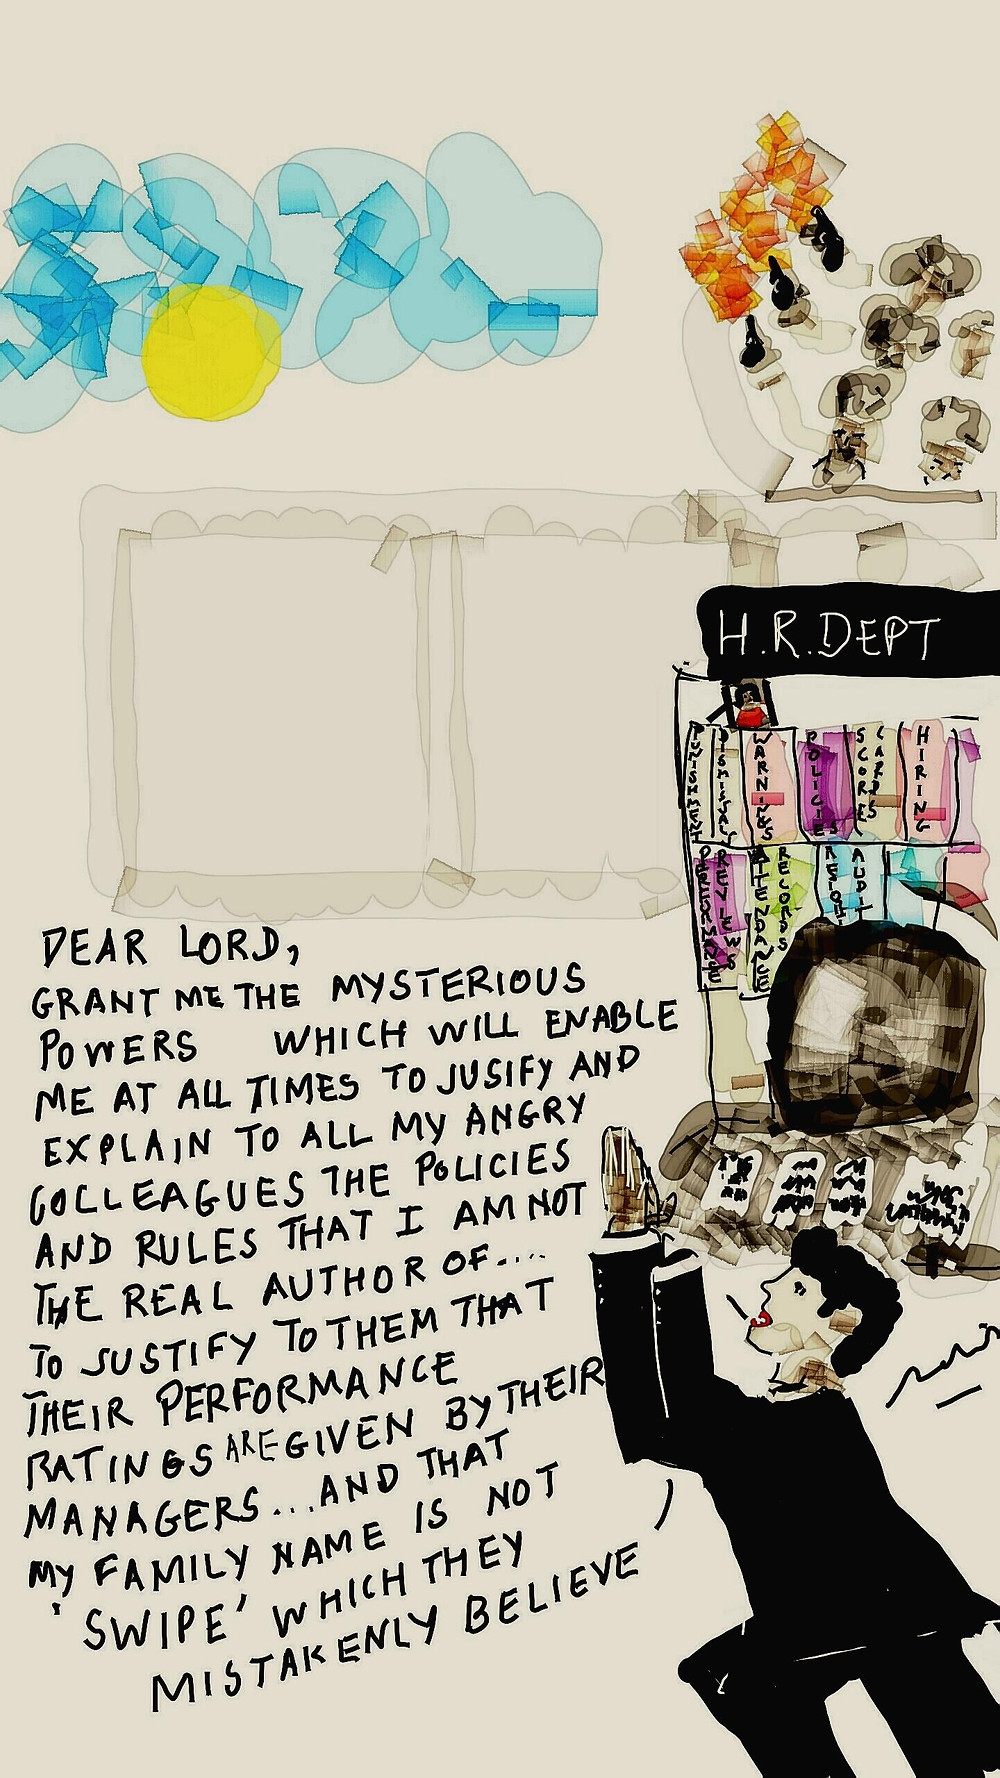 H.R.DEPT
PUNISHMENT
DISMISSALS
WARNINGS
POLICIES
SCORE
CARDS
HIRING
PERFORMANCE
REVIEWS
ATTENDANCE
RECORDS
AUDIT
DEAR LORD,
GRANT ME THE MYSTERIOUS
POWERS WHICH WILL ENABLE
ME AT ALL TIMES TO JUSIFY AND
EXPLAIN TO ALL MY ANGRY
COLLEAGUES THE POLICIES
AND RULES THAT I AM NOT
THE REAL AUTHOR OF....
TO JUSTIFY TO THEM THAT
THEIR PERFORMANCE
RATINGS ARE GIVEN BY THEIR
MANAGERS...AND THAT
MY FAMILY NAME IS NOT
'SWIPE' WHICH THEY
MISTAKENLY BELIEVE